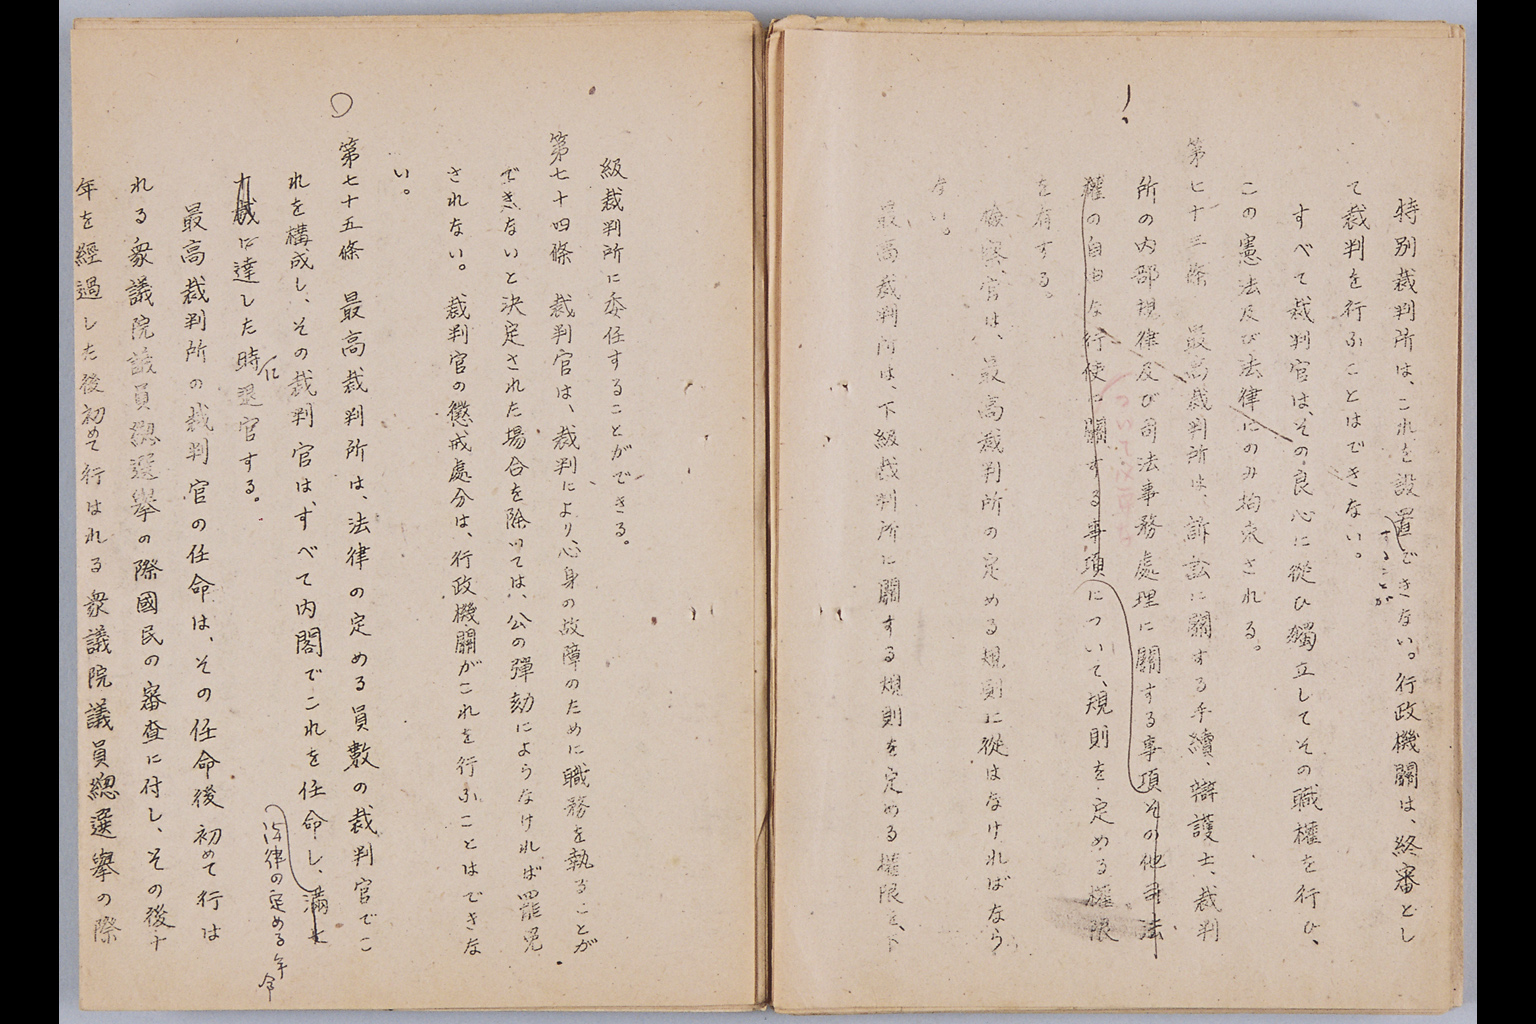 特別裁判所は、これを設置できない。行政機關は、終審とし
することが
て裁判を行ふことはできない。
すべて裁判官は、その良心に從ひ獨立してその職權を行ひ、
この憲法及び法律にのみ拘束される。
第七十三條 最高裁判所は、訴訟に關する手續、辯護士、裁判
所の内部規律及び司法事務處理に關する事項その他司法
權の自由な行使に關する事項について、規則を定める權限
を有する。
檢察官は、最高裁判所の定める規則に從はなければなら
ない。
最高裁判所は、下級裁判所に關する規則を定める權限を、下
級裁判所に委任することができる。
第七十四條 裁判官は、裁判により心身の故障のために職務を執ることが
できないと決定された場合を除いては、公の彈劾によらなければ罷免
されない。裁判官の懲戒處分は、行政機關がこれを行ふことはできな
い。
第七十五條 最高裁判所は、法律の定める員數の裁判官でこ
れを構成し、その裁判官は、すべて内閣でこれを任命し、滿七
法律の定める年令
十歳に達した時退官する。
に
最高裁判所の裁判官の任命は、その任命後初めて行は
れる衆議院議員總選擧の際國民の審査に付し、その後十
年を經過した後初めて行はれる衆議院議員總選擧の際